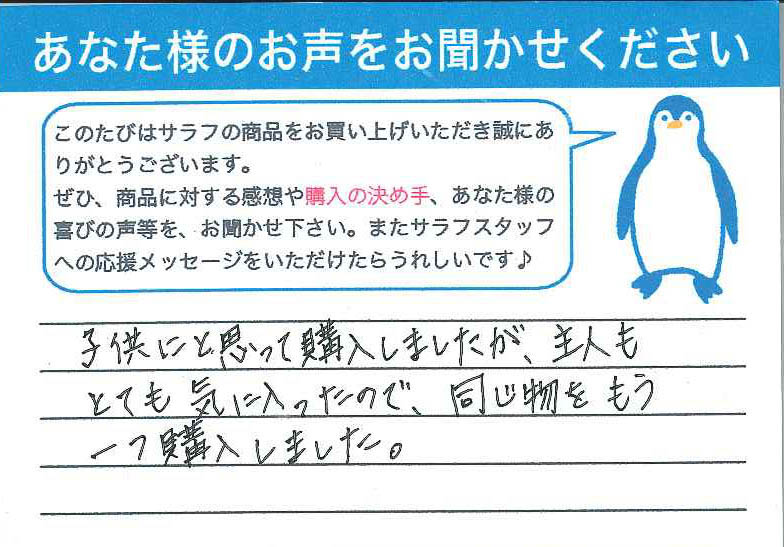 あなた様のお声をお聞かせください
このたびはサラフの商品をお買い上げいただき誠にあ
りがとうございます。
ぜひ、商品に対する感想や購入の決め手、あなた様の
喜びの声等を、お聞かせ下さい。またサラフスタッフ
への応援メッセージをいただけたらうれしいです♪
子供にと思って購入しましたが、主人も
とても気に入ったので、同じ物をもう
一つ購入しました。